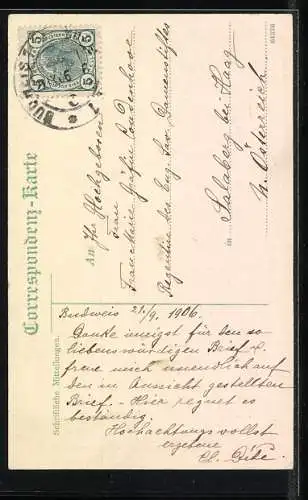 Correspondenz-Karte
BUDWEIS
5
5
An Ihr Hochgeboren
Frau
Frau Marie Gräfin Coudenhove
Regentin des Eug. Sav. Damenstiftes
in Salaberg bei Haag
N. Österreich
Schriftliche Mitteilungen.
Budweis 21./9. 1906.
Danke innigst für den so
liebenswürdigen Brief &
freue mich unendlich auf
den in Aussicht gestellten
Brief. - Hier regnet es
beständig.
Hochachtungsvollst
ergebene